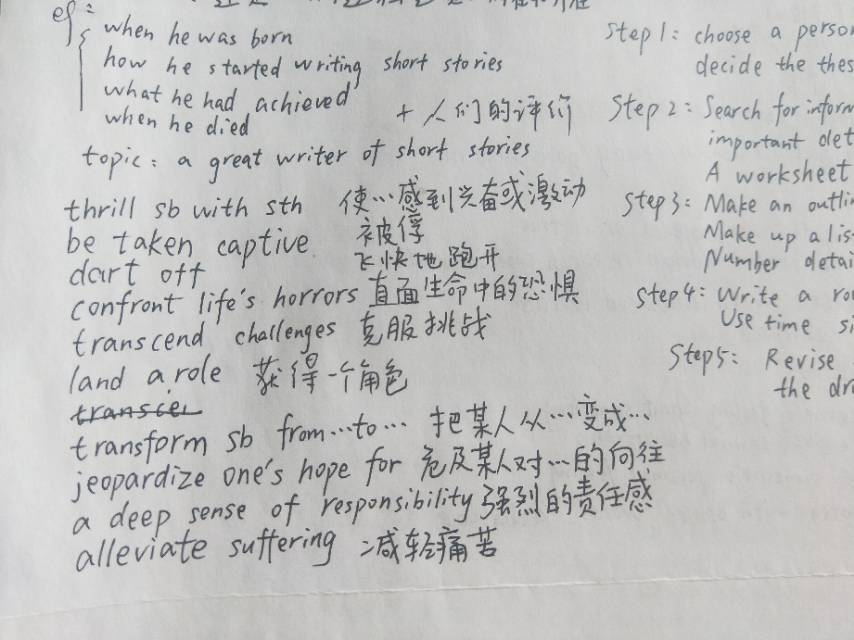 eg:
when he was born
how he started writing short stories
what he had achieved
when he died
+人们的评价
topic: a great writer of short stories
thrill sb with sth 使…感到兴奋或激动
be taken captive 被俘
dart off 飞快地跑开
confront life's horrors 直面生命中的恐惧
transcend challenges 克服挑战
land a role 获得一个角色
transform sb from…to… 把某人从…变成…
jeopardize one's hope for 危及某人对…的向往
a deep sense of responsibility 强烈的责任感
alleviate suffering 减轻痛苦
Step 1: choose a person
decide the thes
Step 2: Search for inform
important det
A worksheet
Step 3: Make an outlin
Make up a lis
Number detai
Step 4: Write a ro
Use time si
Step 5: Revise
the dra